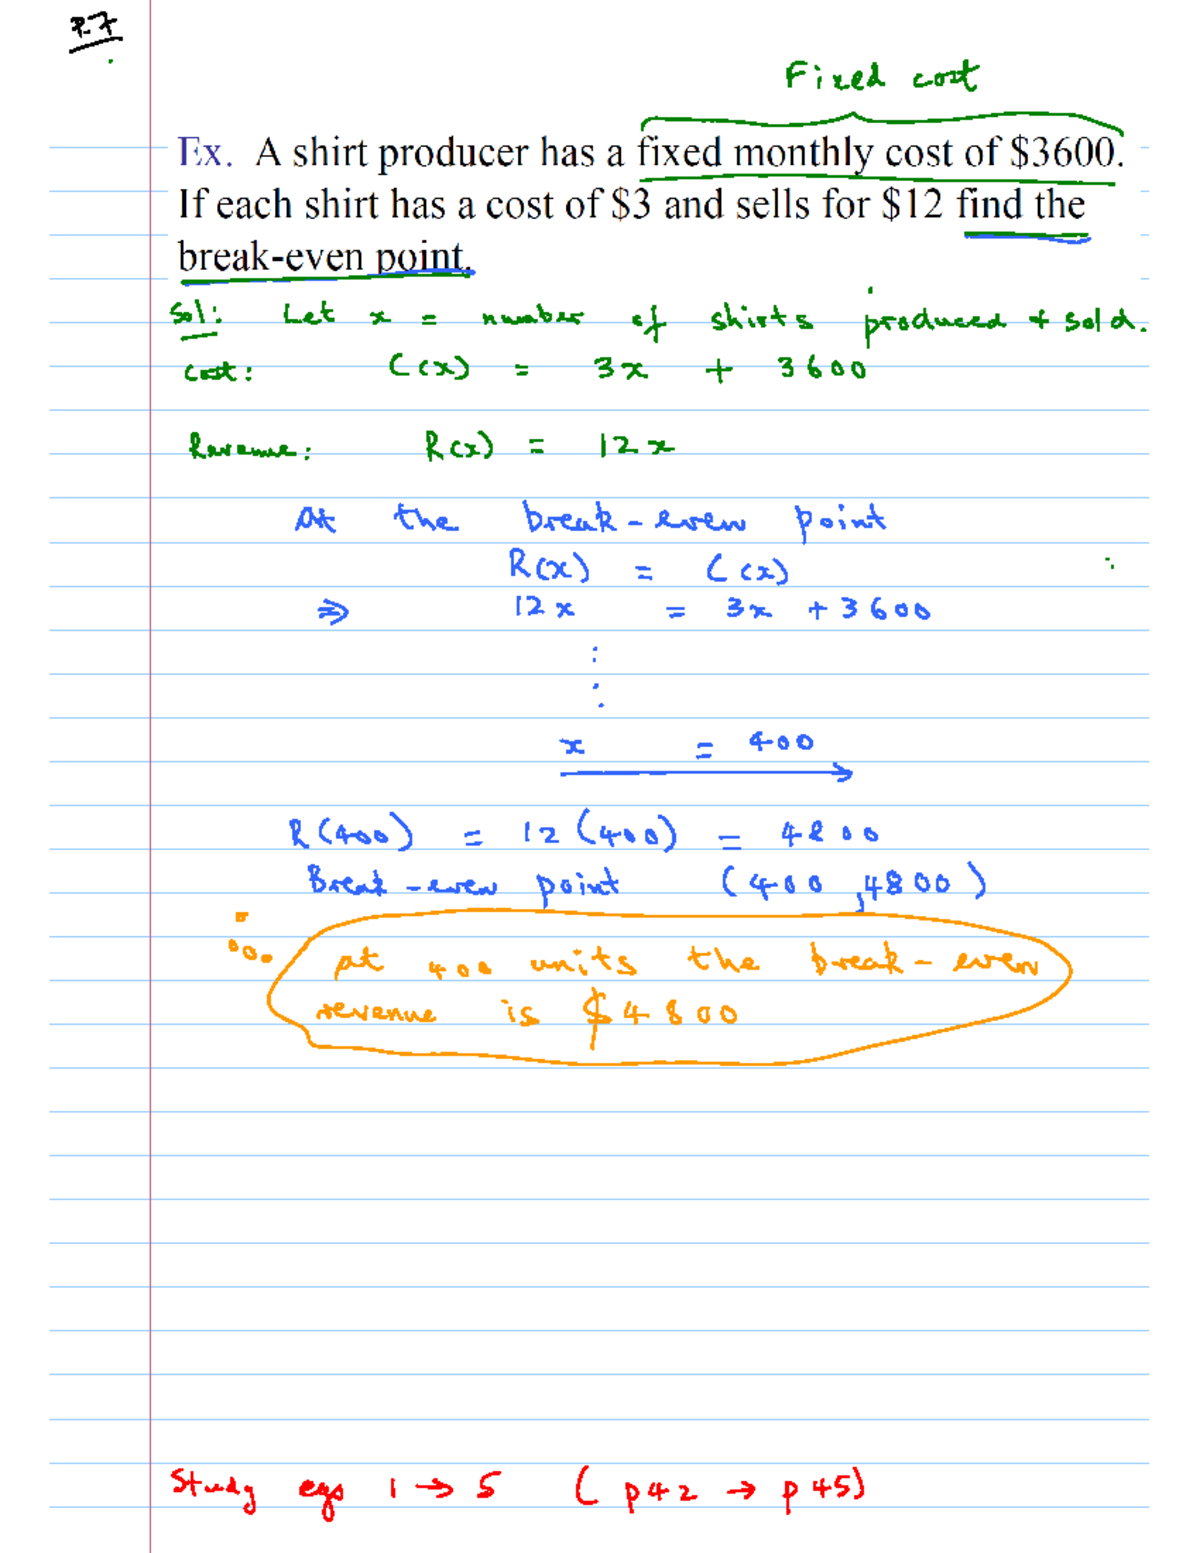 P.7
Fixed cost
Ex. A shirt producer has a fixed monthly cost of $3600.
If each shirt has a cost of $3 and sells for $12 find the
break-even point.
Sol: Let x = number of shirts produced & sold.
Cost: C(x) = 3x + 3600
Revenue: R(x) = 12x
At the break-even point
R(x) = C(x)
⇒ 12x = 3x + 3600
⋮
x = 400
R(400) = 12(400) = 4800
Break-even point (400, 4800)
at 400 units the break-even
revenue is $4800
Study egs 1 → 5 (p42 → p45)